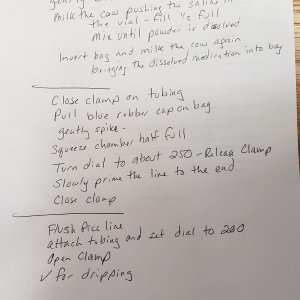 gently
Milk the cow pushing the saline
the vial - fill 1/2 full
Mix until powder is dissolved
Invert bag and milk the cow again
bringing the dissolved medication into bag
Close clamp on tubing
Pull blue rubber cap on bag
gently spike.
Squeeze chamber half full
Turn dial to about 250 - Release Clamp
Slowly prime the line to the end
Close clamp
Flush Picc line
attach tubing and set dial to 200
Open Clamp
✓ for dripping